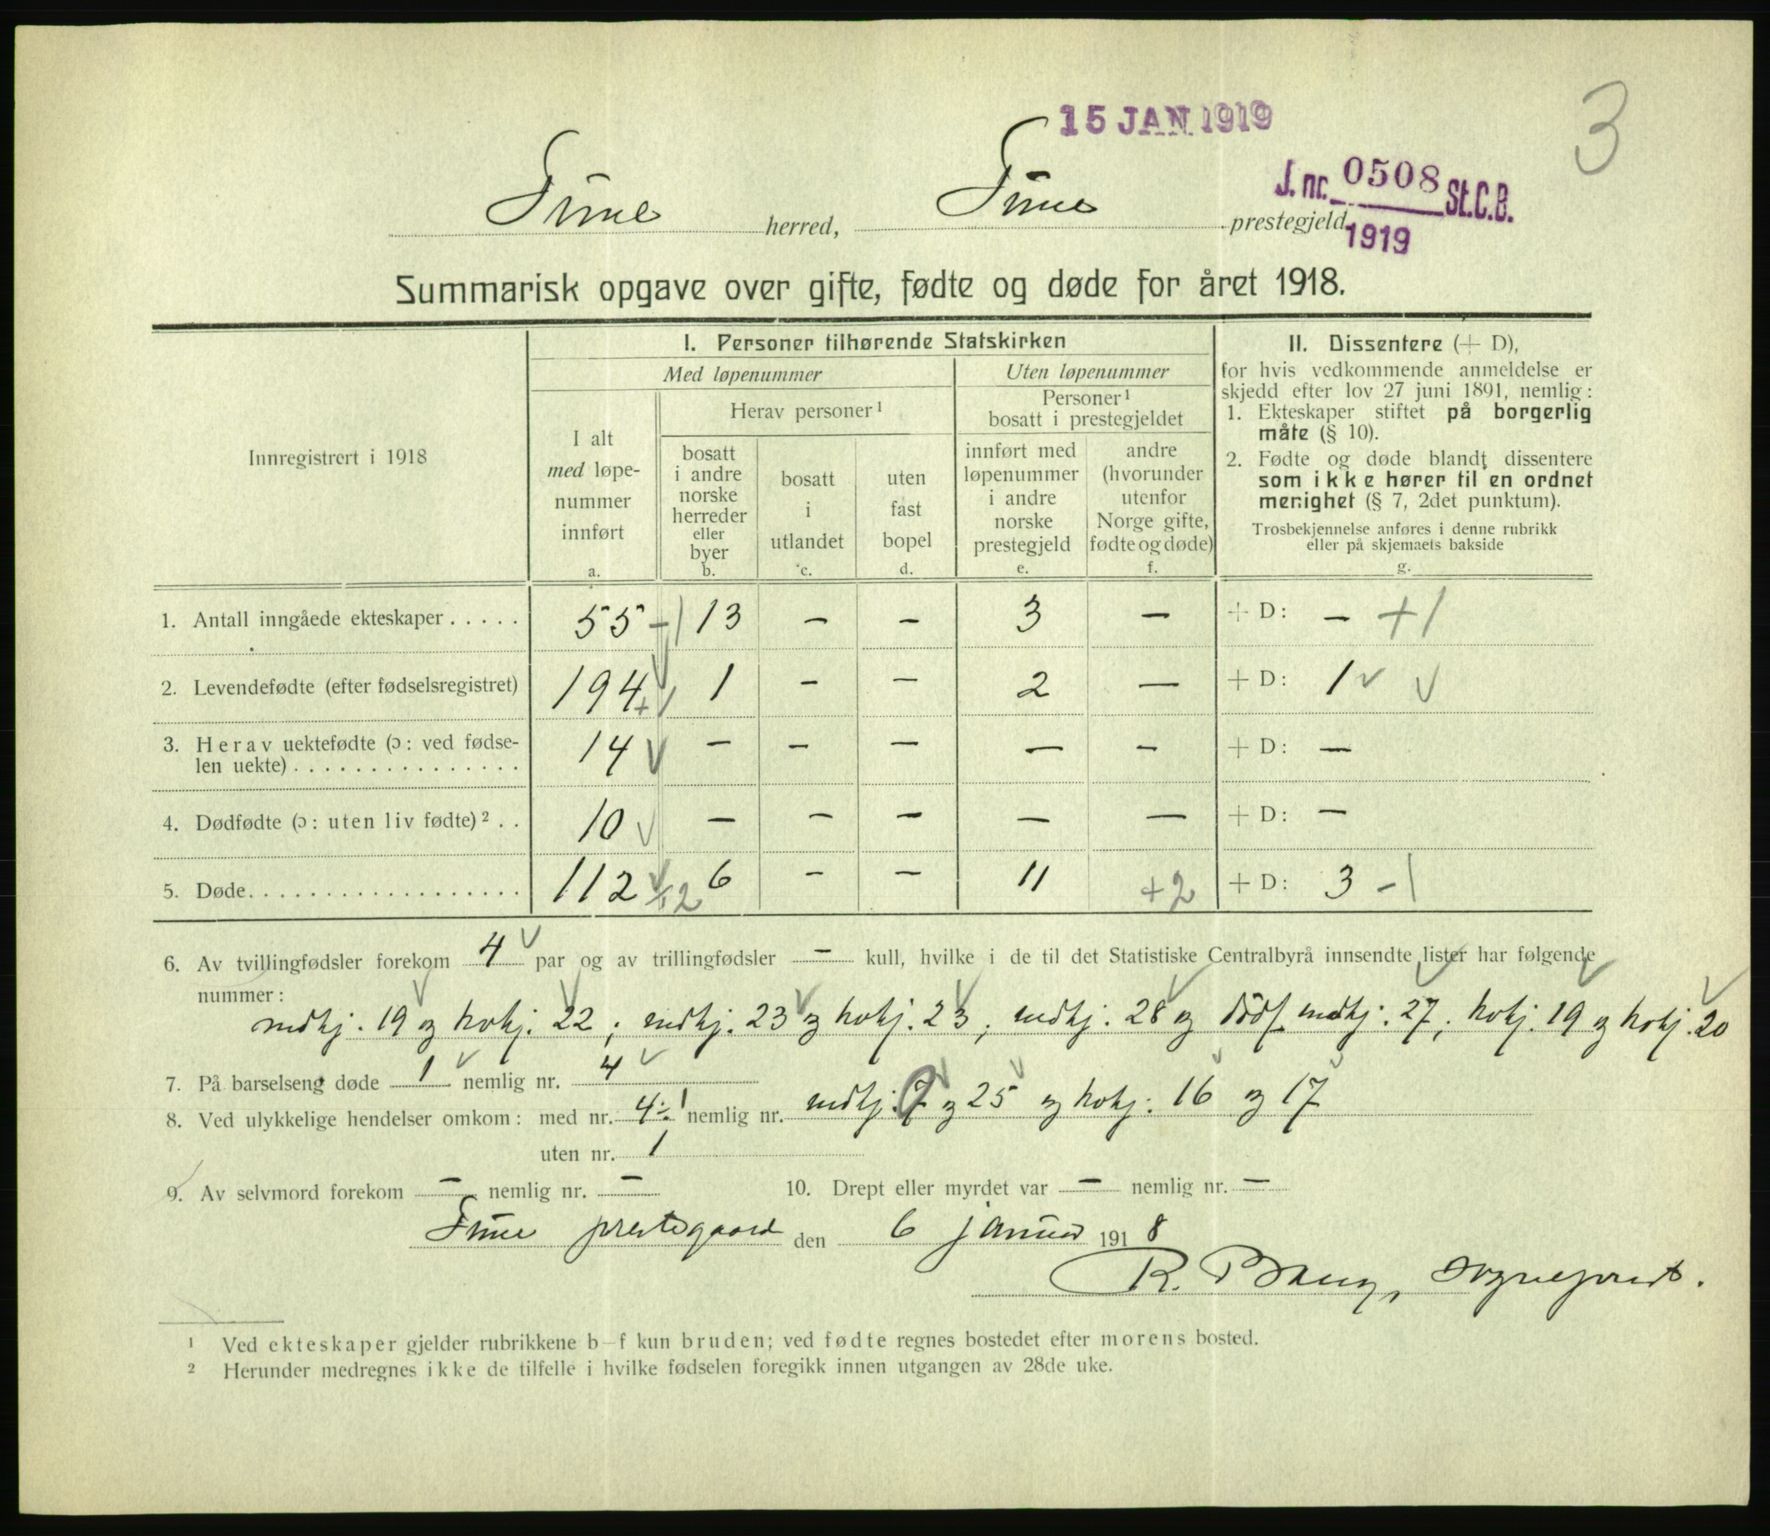 3
15 JAN 1919
J. nr. 0508 St.C.B.
1919
Time herred, Time prestegjeld
Summarisk opgave over gifte, fødte og døde for året 1918.
Innregistrert i 1918
I. Personer tilhørende Statskirken
Med løpenummer
Uten løpenummer
I alt
med løpe-
nummer
innført
a.
Herav personer ¹
bosatt
i andre
norske
herreder
eller
byer
b.
bosatt
i
utlandet
c.
uten
fast
bopel
d.
Personer ¹
bosatt i prestegjeldet
innført med
løpenummer
i andre
norske
prestegjeld
e.
andre
(hvorunder
utenfor
Norge gifte,
fødte og døde)
f.
II. Dissentere (+ D),
for hvis vedkommende anmeldelse er
skjedd efter lov 27 juni 1891, nemlig:
1. Ekteskaper stiftet på borgerlig
måte (§ 10).
2. Fødte og døde blandt dissentere
som ikke hører til en ordnet
menighet (§ 7, 2det punktum).
Trosbekjennelse anføres i denne rubrikk
eller på skjemaets bakside
g.
1. Antall inngåede ekteskaper . . . . . 55 -1 13 — — 3 — + D: — +1
2. Levendefødte (efter fødselsregistret) 194 +1 1 — — 2 — + D: 1
3. Herav uektefødte (ɔ: ved fødse-
len uekte) . . . . . . . . . . . . . . . 14 — — — — — + D: —
4. Dødfødte (ɔ: uten liv fødte) ² . . 10 — — — — — + D: —
5. Døde. . . . . . . . . . . . . . . . . . 112 ÷2 6 — — 11 +2 + D: 3 -1
6. Av tvillingfødsler forekom 4 par og av trillingfødsler — kull, hvilke i de til det Statistiske Centralbyrå innsendte lister har følgende
nummer:
mdkj. 19 og kvkj. 22; mdkj. 23 og kvkj. 23; mdkj. 28 og dödf. mdkj. 27; kvkj. 19 og kvkj. 20
7. På barselseng døde 1 nemlig nr. 4
8. Ved ulykkelige hendelser omkom: med nr. 4 ÷ 1 nemlig nr. mdkj. 7 og 25 og kvkj. 16 og 17
uten nr. 1
9. Av selvmord forekom — nemlig nr. — 10. Drept eller myrdet var — nemlig nr. —
Time prestegaard den 6 januar 1918
R. Bang, sogneprest.
¹ Ved ekteskaper gjelder rubrikkene b–f kun bruden; ved fødte regnes bostedet efter morens bosted.
² Herunder medregnes ikke de tilfelle i hvilke fødselen foregikk innen utgangen av 28de uke.